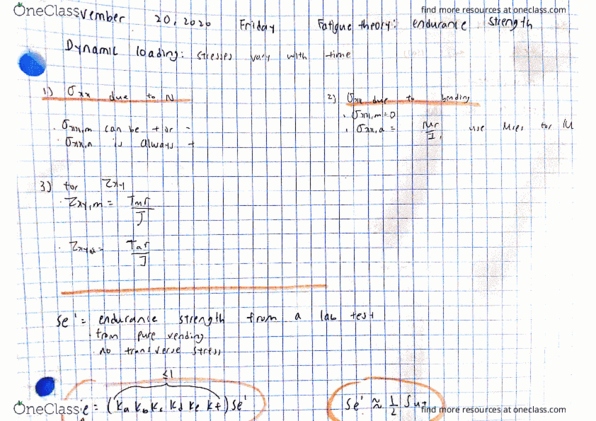 OneClass
vember 20, 2020 Friday Fatigue theory: endurance strength
find more resources at oneclass.com
Dynamic loading: stresses vary with time
1) σxx due to N
2) σxx due to bending
· σxx,m can be + or -
· σxx,m = 0
· σxx,a is always +
· σxx,a = Mr/I, use for M
3) for τxy
· τxy,m = Tmr/J
· τxy,a = Tar/J
Se' = endurance strength from a lab test
· from pure vending
· no transverse stress
≤1
e = (ka kb kc kd ke kf) Se'
Se' ≈ 1/2 Sut
OneClass
find more resources at oneclass.com